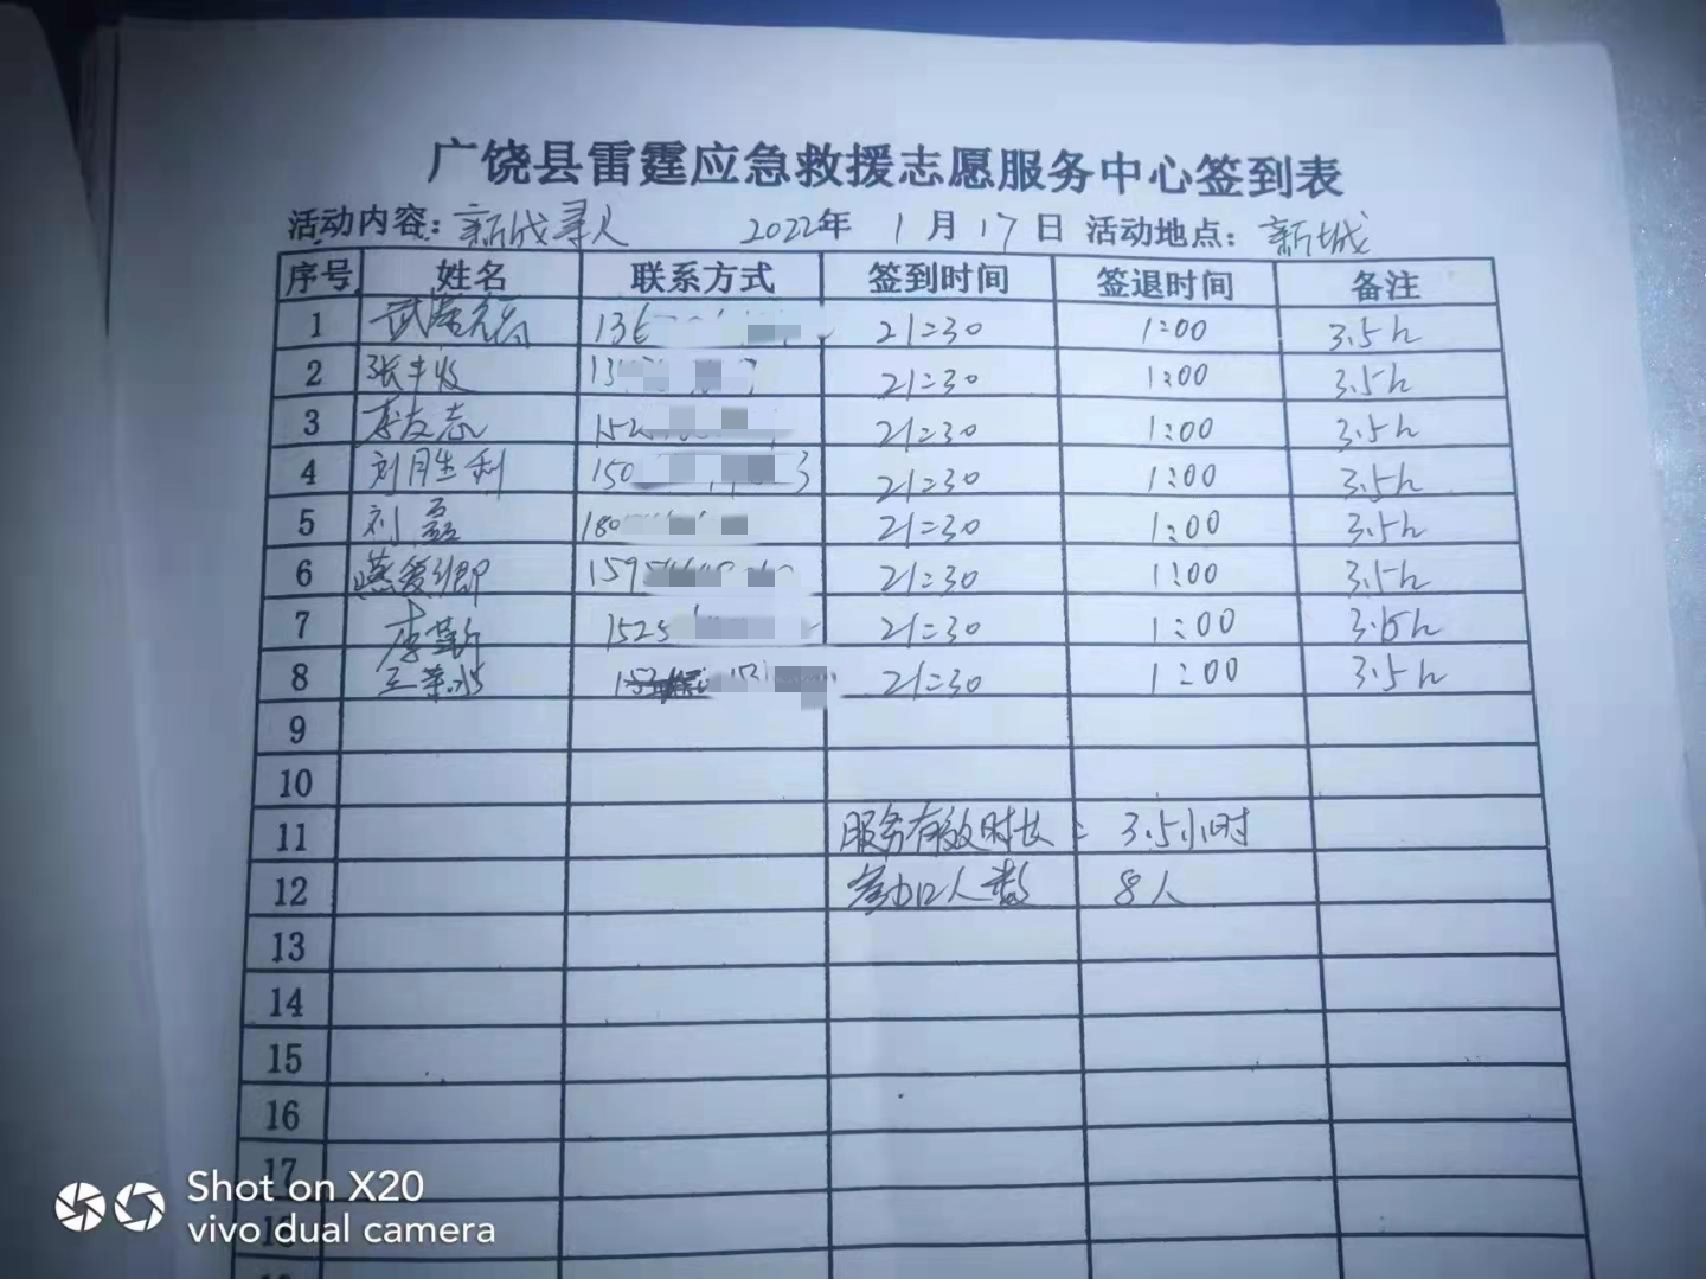 广饶县雷霆应急救援志愿服务中心签到表
活动内容: 新城寻人 2022年 1月17日 活动地点: 新城
序号 姓名 联系方式 签到时间 签退时间 备注
1 136 21:30 1:00 3.5h
2 张丰收 13 21:30 1:00 3.5h
3 李友志 152 21:30 1:00 3.5h
4 刘胜利 150 3 21:30 1:00 3.5h
5 刘磊 180 21:30 1:00 3.5h
6 燕爱卿 159 21:30 1:00 3.5h
7 1525 21:30 1:00 3.5h
8 21:30 1:00 3.5h
9
10
11 服务有效时长: 3.5小时
12 参加人数 8人
13
14
15
16
17
Shot on X20
vivo dual camera